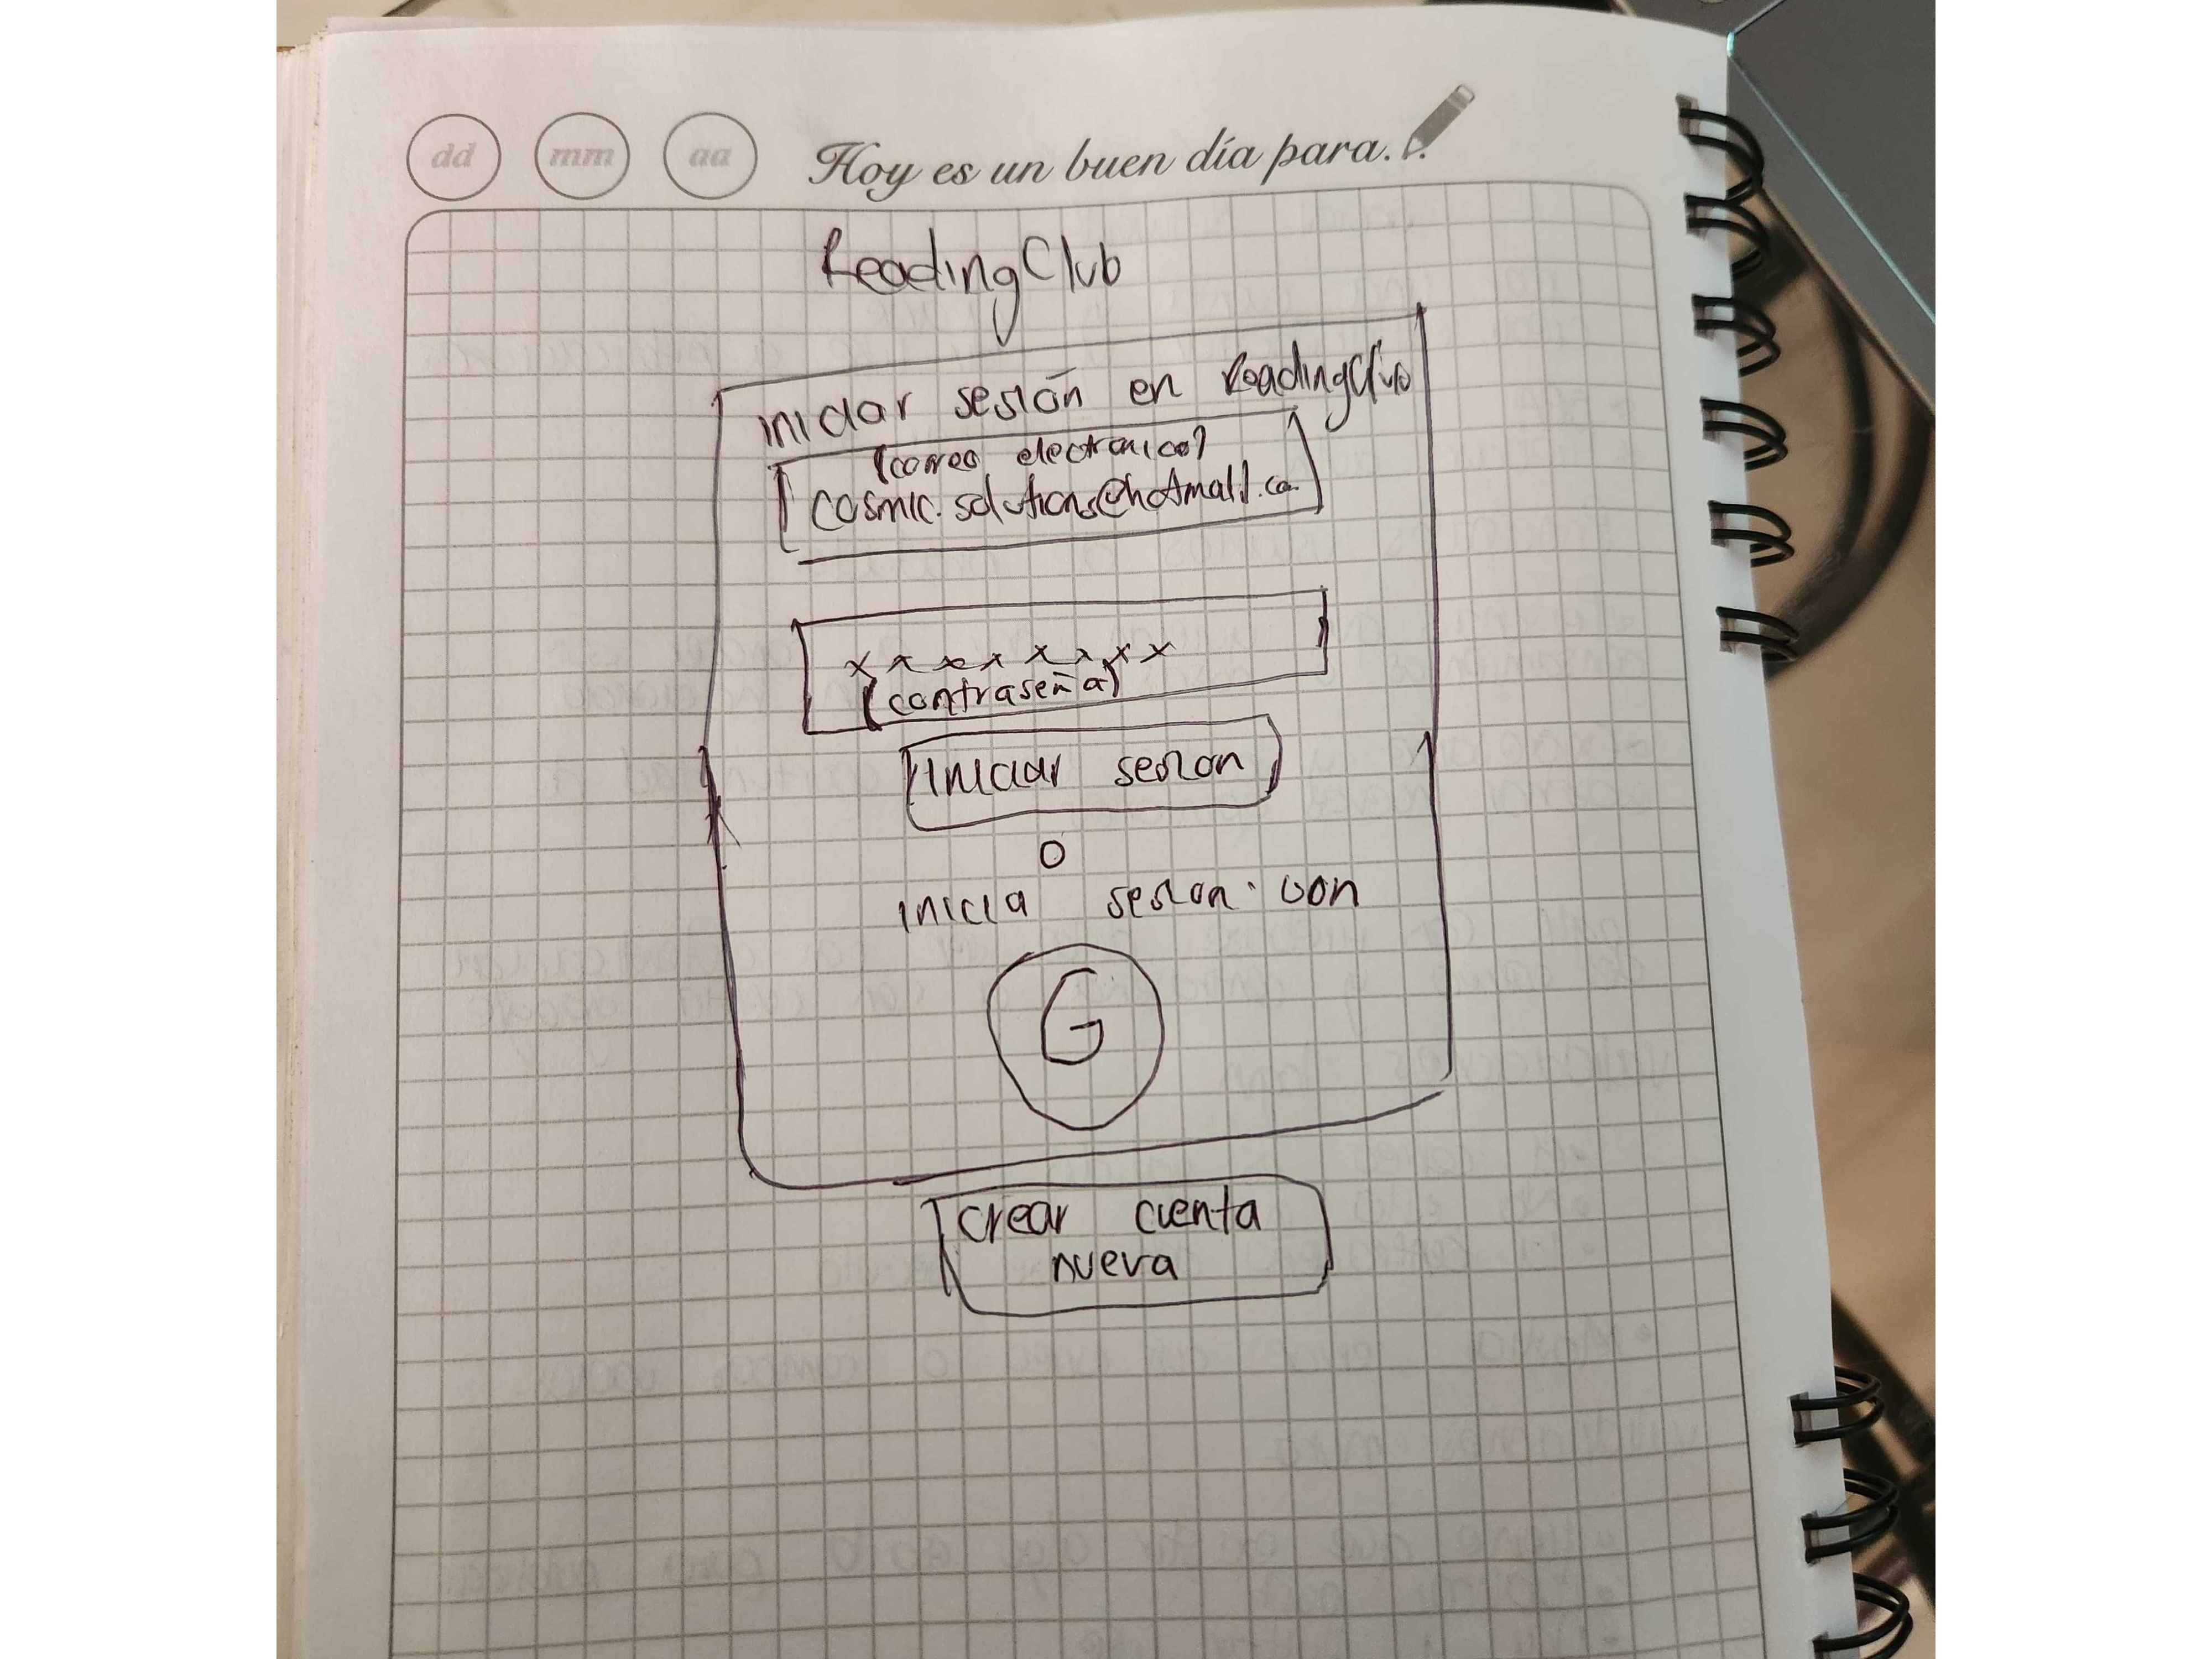 dd mm aa Hoy es un buen día para...
ReadingClub
iniciar sesión en ReadingClub
(correo electronico)
cosmic.solutions@hotmail.co
xxxxxxxx
(contraseña)
Iniciar sesion
O
inicia sesion con
G
crear cuenta
nueva